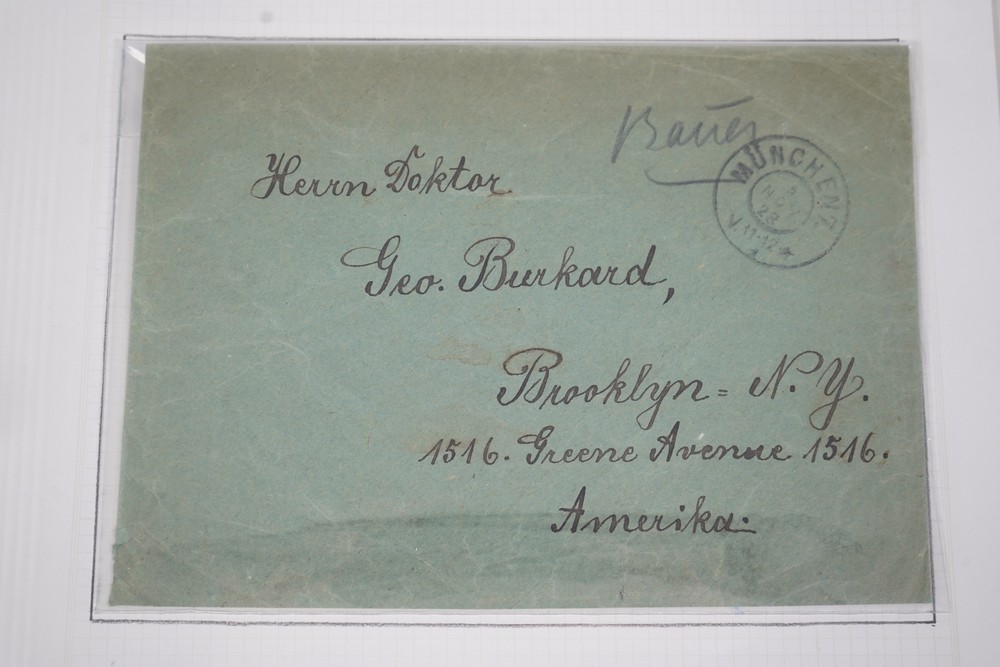 Bauer
MÜNCHEN 7.
NOV
23
V 11-12
Herrn Doktor
Geo. Burkard,
Brooklyn = N. Y.
1516. Greene Avenue 1516.
Amerika.